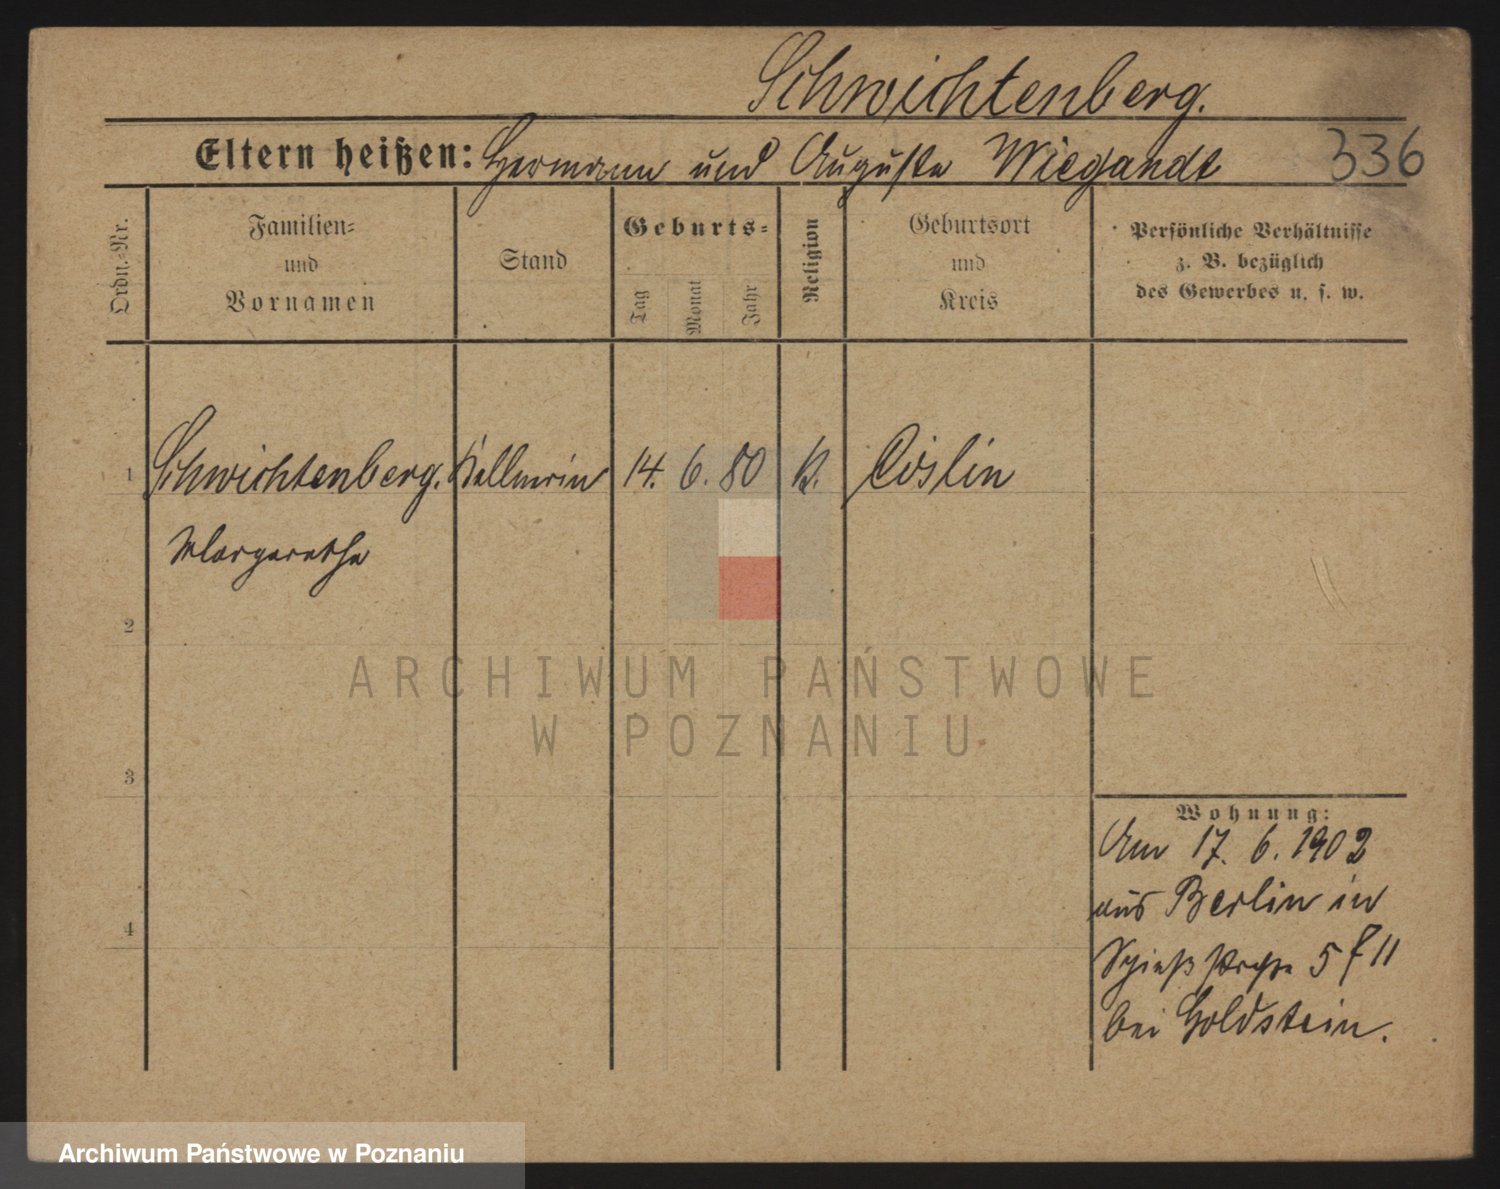 Schwichtenberg.
Eltern heißen: Hermann und Auguste Wiegandt 336
Ordn.-Nr.
Familien-
und
Vornamen
Stand
Geburts-
Tag
Monat
Jahr
Religion
Geburtsort
und
Kreis
Persönliche Verhältnisse
z. B. bezüglich
des Gewerbes u. s. w.
1 Schwichtenberg. Kellnerin 14. 6. 80 Cöslin
Margarethe
2
3
4
Wohnung:
Am 17. 6. 1902
aus Berlin in
Schießstraße 5 II
bei Goldstein.
ARCHIWUM PAŃSTWOWE
W POZNANIU
Archiwum Państwowe w Poznaniu